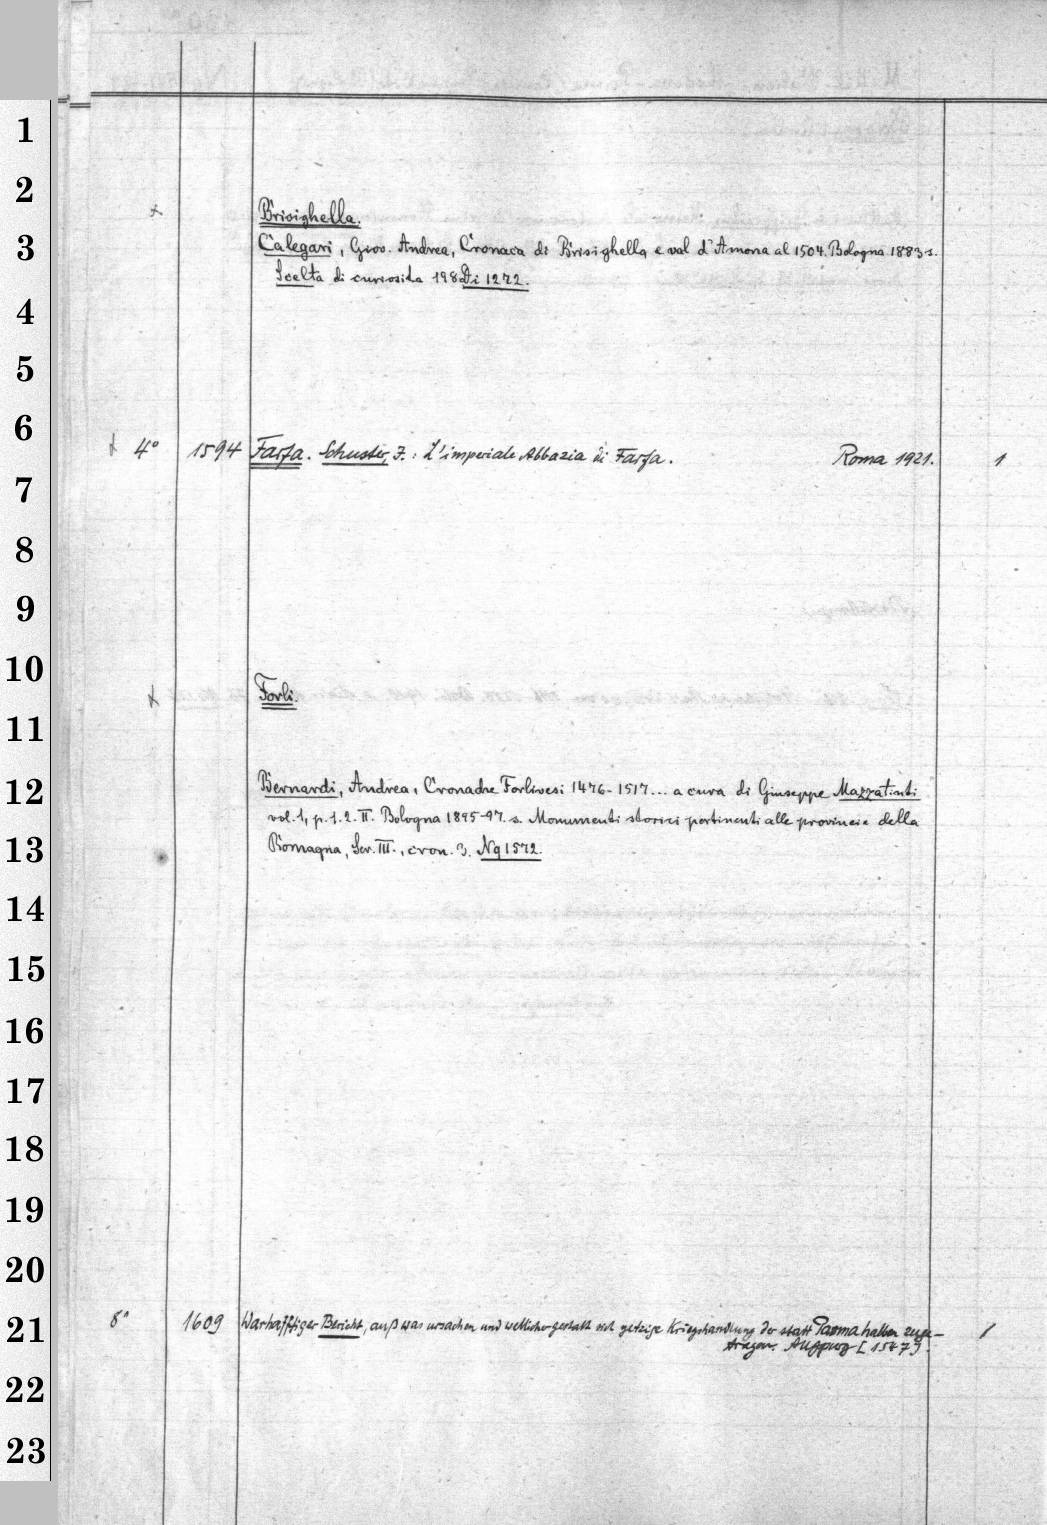 1
2
Brisighella.
3
Calegari, Giov. Andrea, Cronaca di Brisighella e val d'Amona al 1504. Bologna 1883 s.
Scelta di curiosita 198 Di 1272.
4
5
6
+ 4° 1594 Farfa. Schuster, I.: L'imperiale Abbazia di Farfa. Roma 1921. 1
7
8
9
10
Forli.
11
12
Bernardi, Andrea, Cronache Forlivesi 1476-1517... a cura di Giuseppe Mazzatinti
vol. 1, p. 1. 2. II. Bologna 1895-97. s. Monumenti storici pertinenti alle provincie della
13
Romagna, Ser. III., cron. 3. Nq 1572.
14
15
16
17
18
19
20
8° 1609 Warhafftiger Bericht, auß was ursachen und welcher gestalt sich getzige Kriegshandlung der statt Parma halben zuge- 1
21
tragen. [1547].
22
23